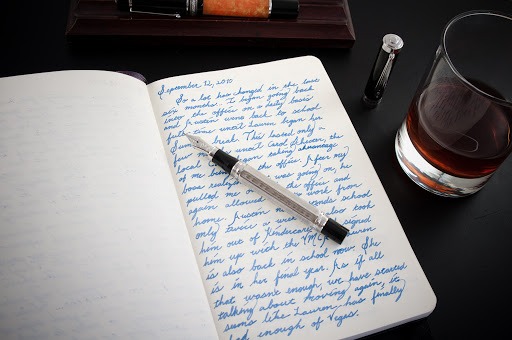 September 12, 2010
So a lot has changed in the last
six months. I began going back
into the office on a daily basis
and Austin went back to school
full time until Lauren began her
break. This lasted only a
few until Carol
local taking advantage
of me office. After my
boss was going on, he
pulled me the office and
again allowed work from
home. Austin attends school
only twice a also took
him out of Kindercare signed
him up with the YMCA. Lauren
is also back in school now. She
is in her final year. As if all
that wasn't enough, we have started
talking about moving again, it
seems like Lauren has finally
had enough of Vegas.